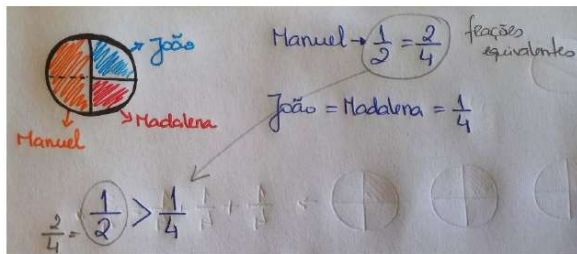 João
Madalena
Manuel
Manuel → 1/2 = 2/4 frações equivalentes
João = Madalena = 1/4
2/4 = 1/2 > 1/4